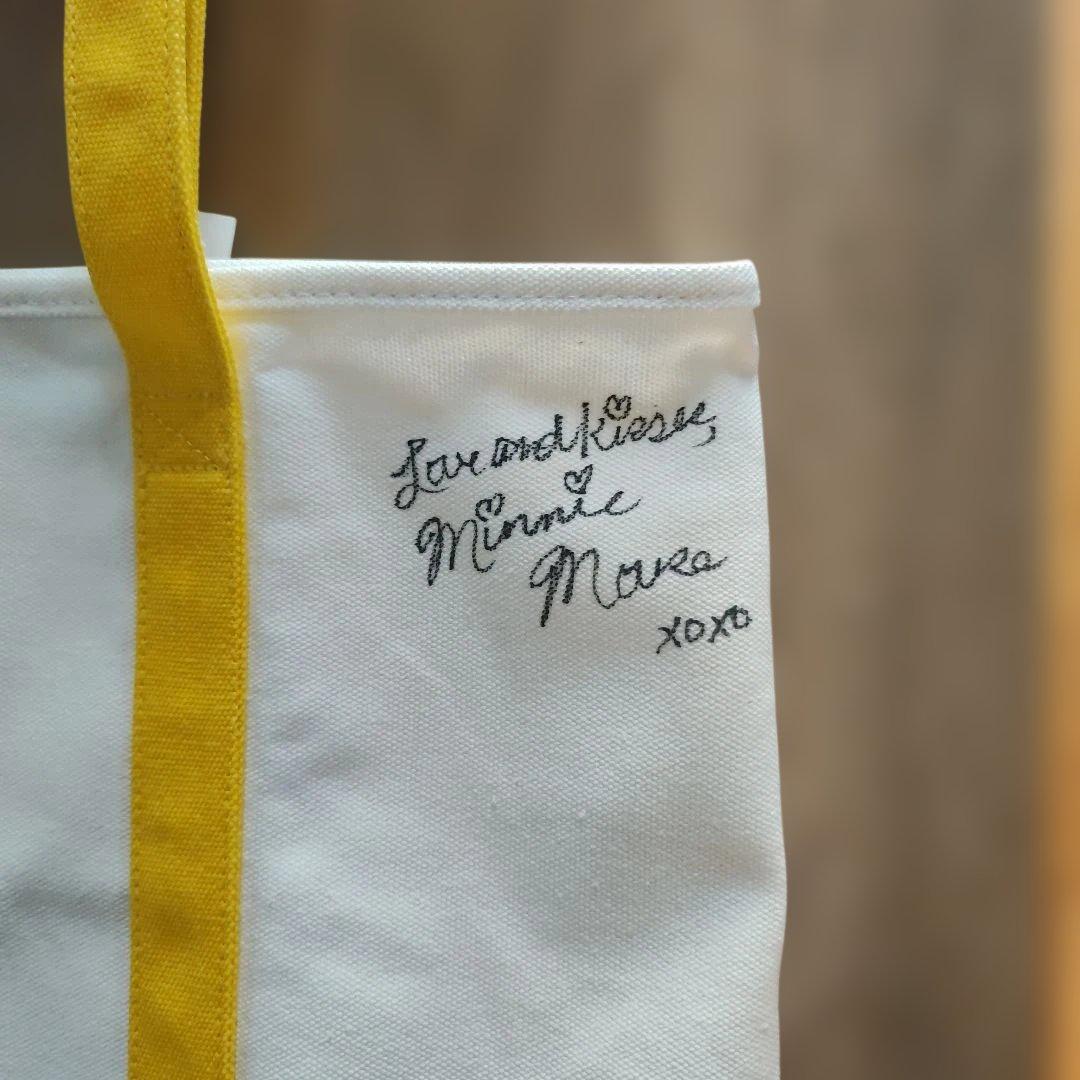 Love and Kisses,
Minnie
Mouse
xoxo